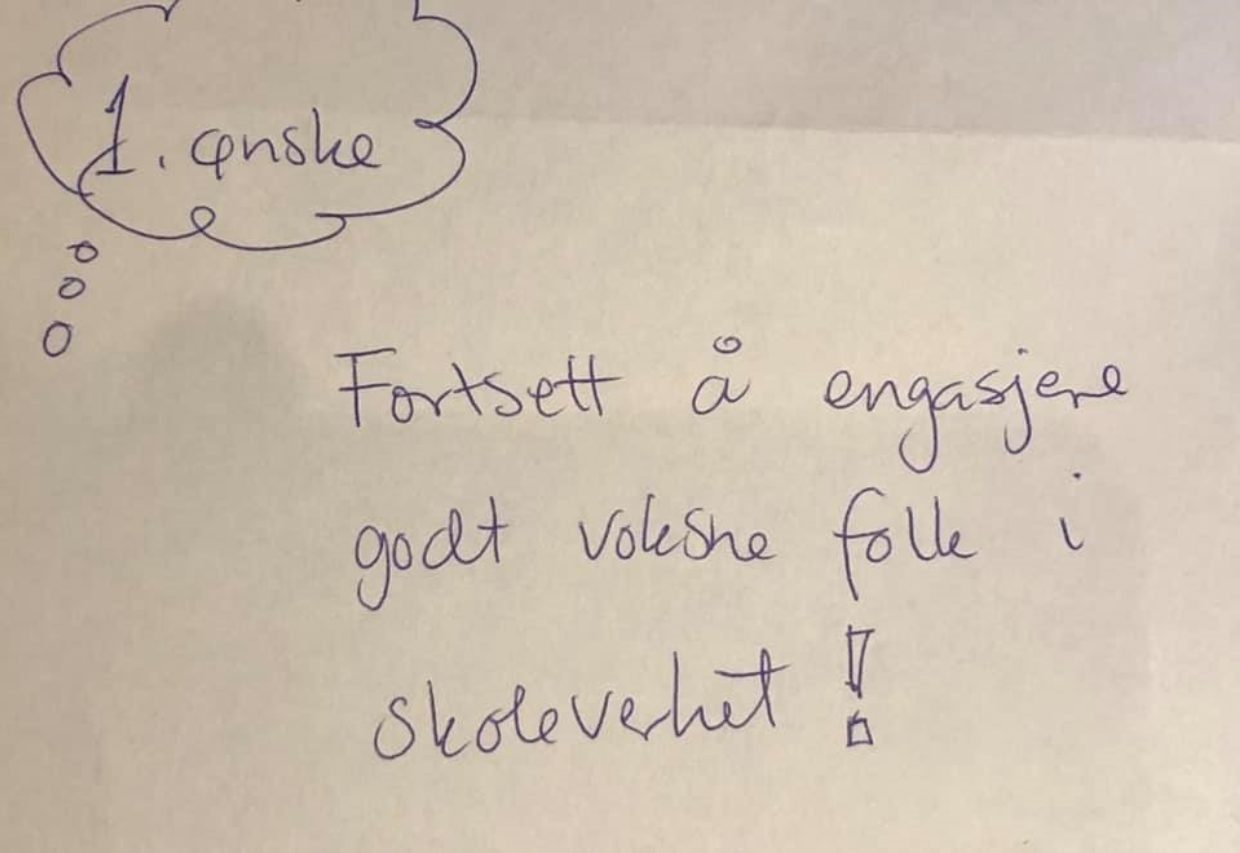 1. ønske
Fortsett å engasjere
godt voksne folk i
skoleverket!